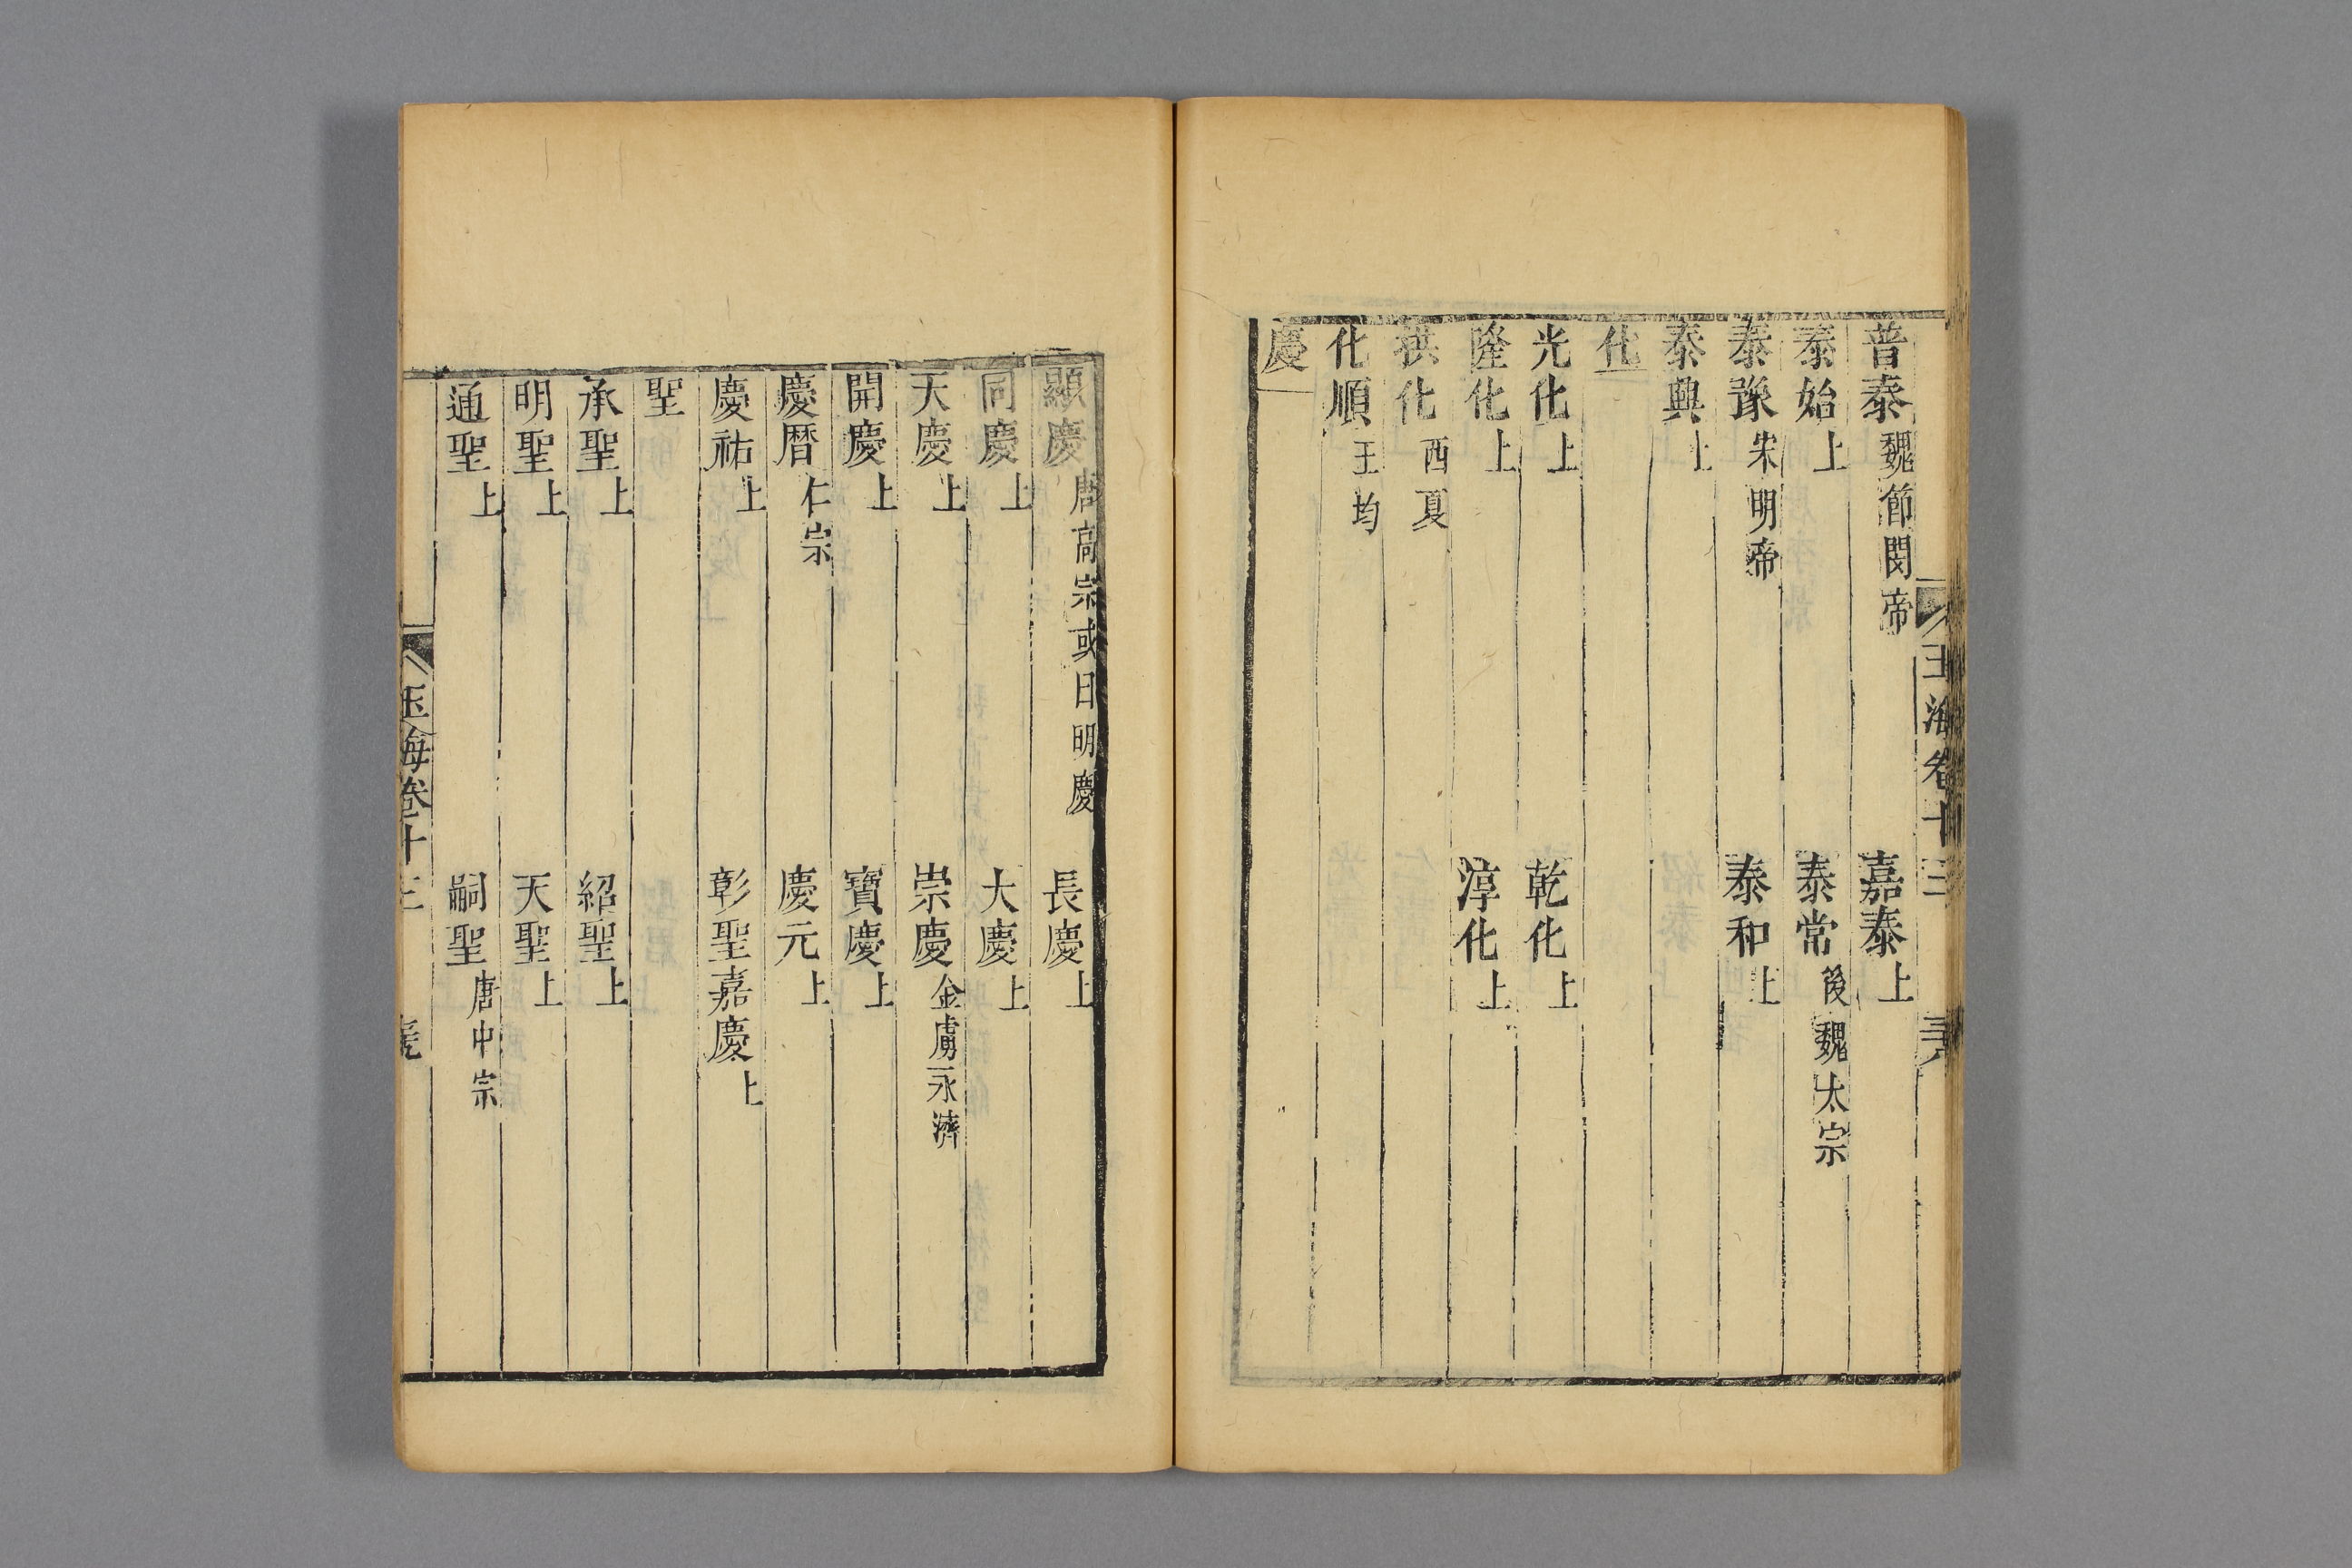 普泰魏節閔帝 嘉泰上
泰始上 泰常後魏太宗
泰豫宋明帝 泰和上
泰興上
化
光化上 乾化上
隆化上 淳化上
拱化西夏
化順王均
慶
玉海卷十三
顯慶唐高宗或曰明慶 長慶上
同慶上 大慶上
天慶上 崇慶金虜永濟
開慶上 寶慶上
慶曆仁宗 慶元上
慶祐上 彰聖嘉慶上
聖
承聖上 紹聖上
明聖上 天聖上
通聖上 嗣聖唐中宗
玉海卷十三